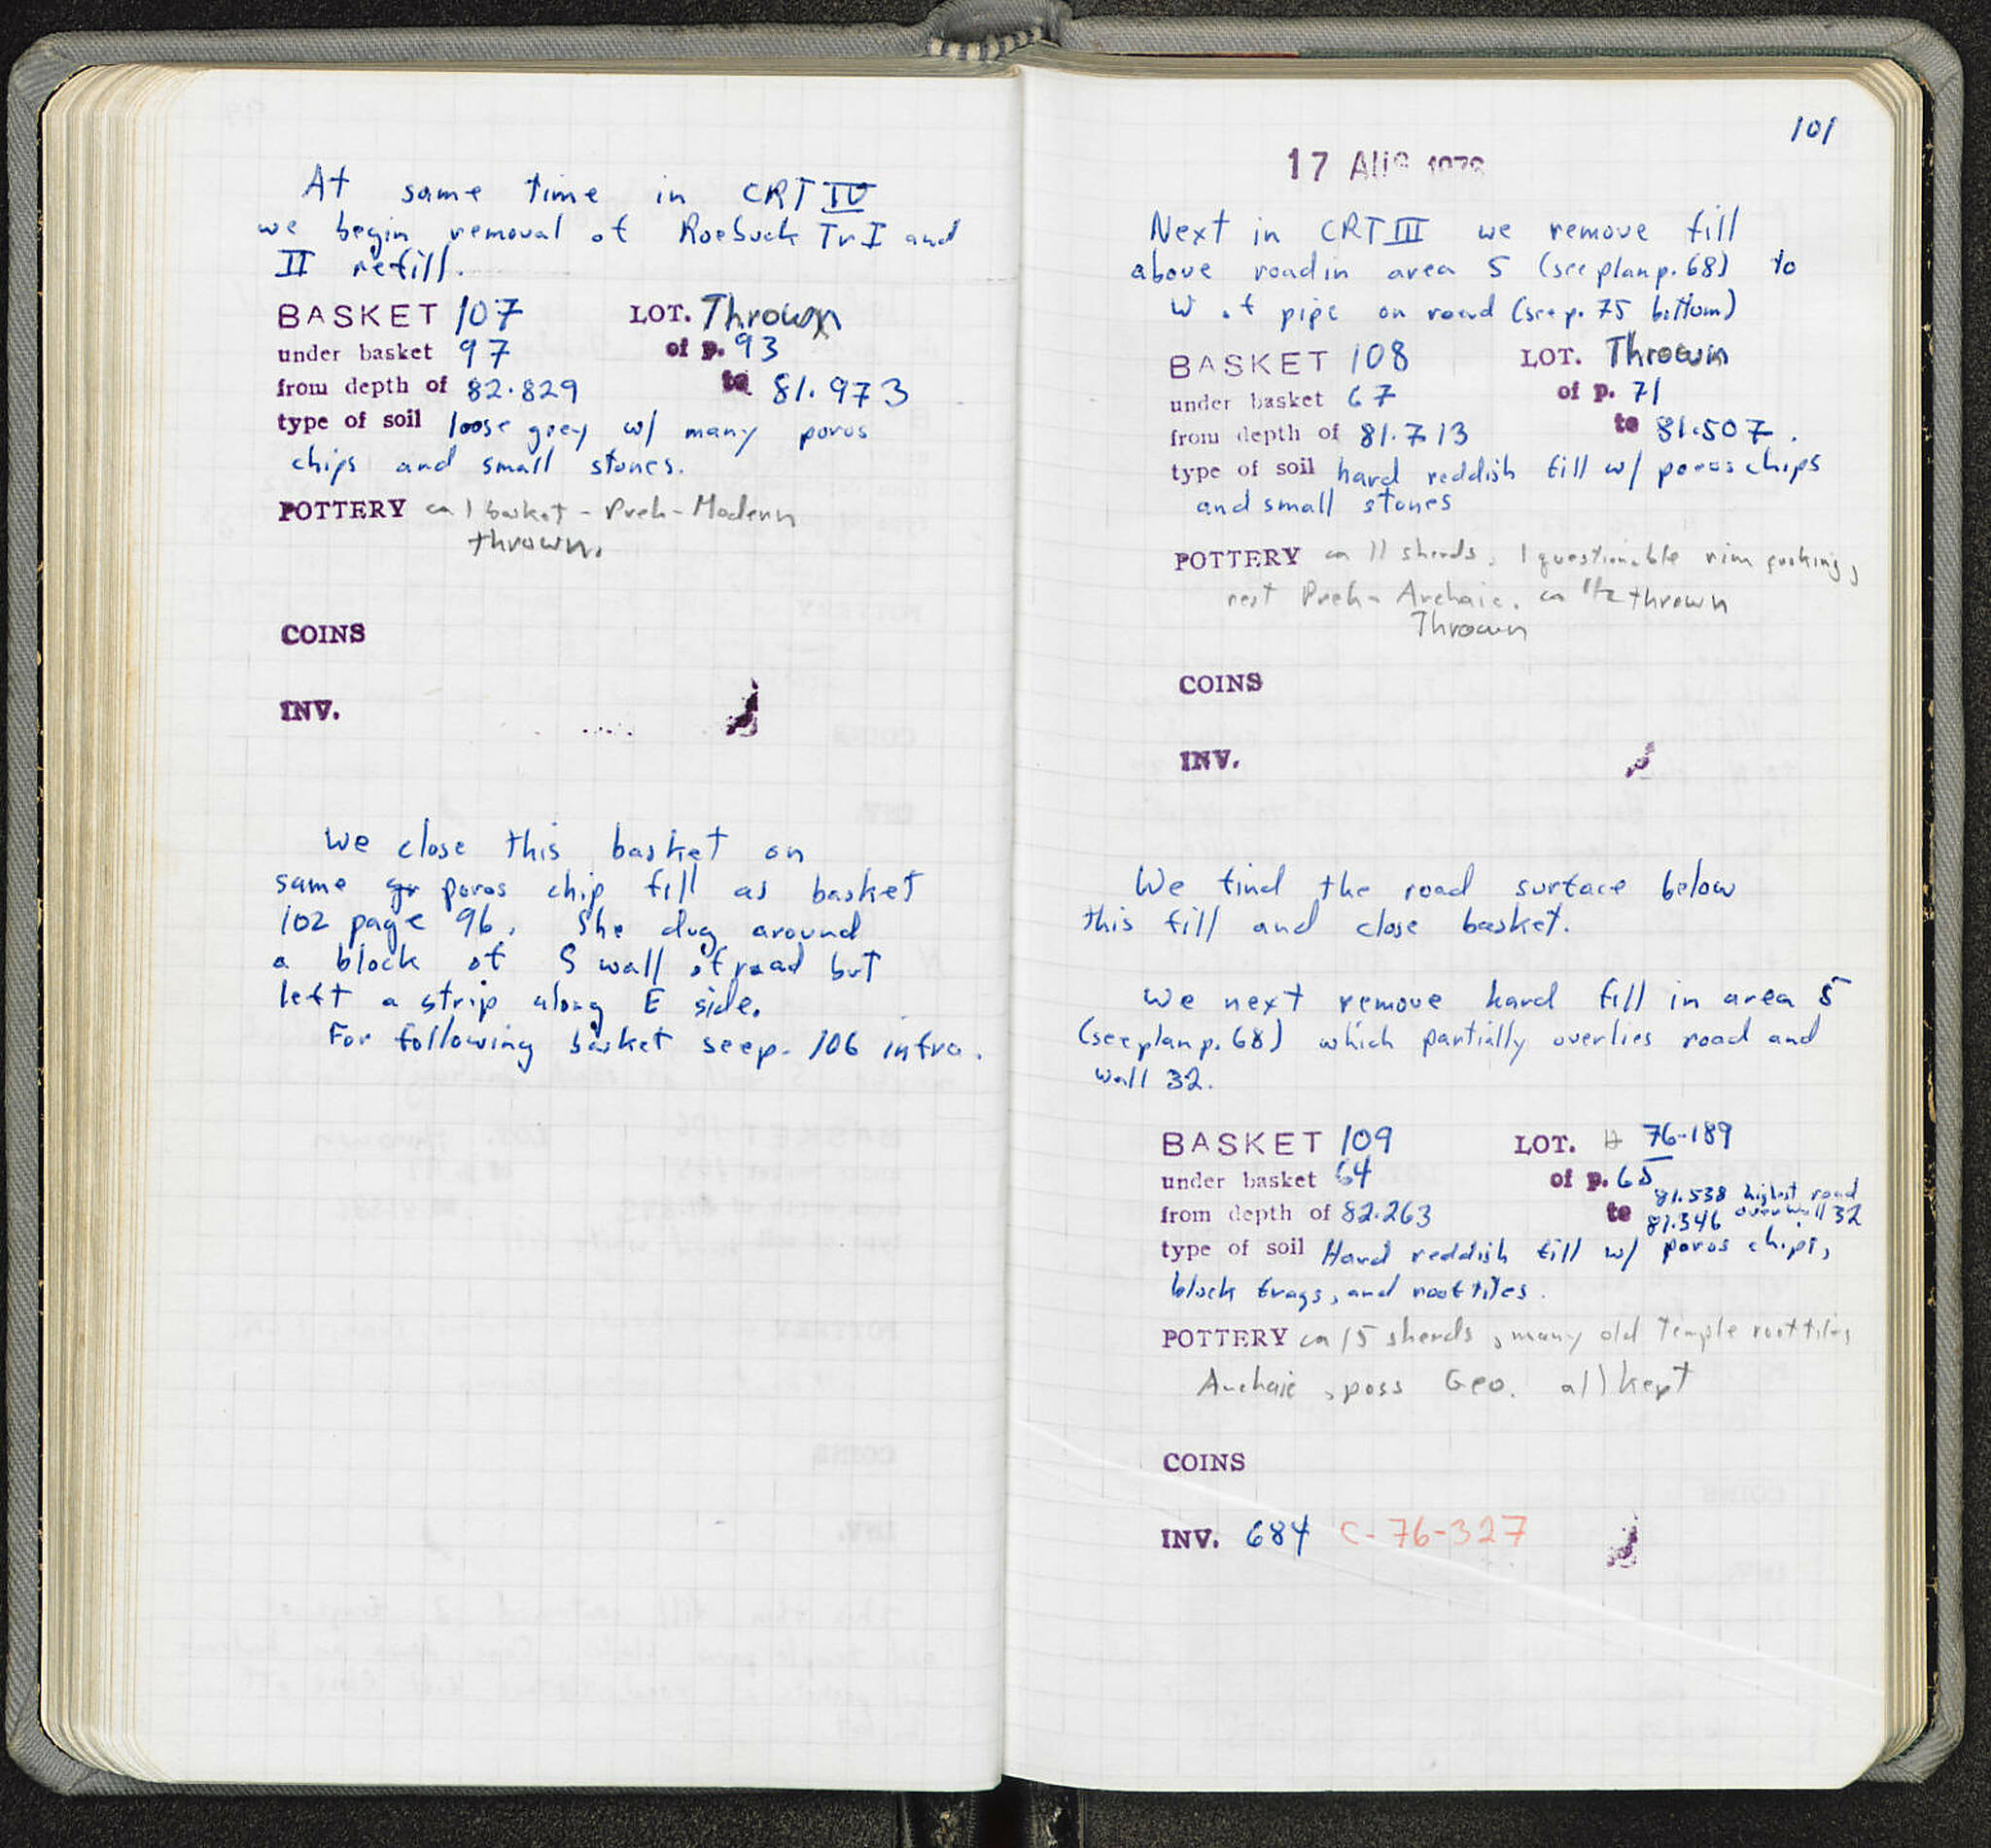 At same time in CRT IV
we begin removal of Roebuck Tr I and
II refill.
BASKET 107 LOT. Thrown
under basket 97 of p. 93
from depth of 82.829 to 81.973
type of soil loose grey w/ many poros
chips and small stones.
POTTERY ca 1 basket - Preh - Modern
thrown.
COINS
INV.
We close this basket on
same gr poros chip fill as basket
102 page 96. She dug around
a block of S wall of road but
left a strip along E side.
For following basket see p. 106 infra.
101
17 AUG
Next in CRT III we remove fill
above road in area 5 (see plan p. 68) to
W of pipe on road (see p. 75 bottom)
BASKET 108 LOT. Thrown
under basket 67 of p. 71
from depth of 81.713 to 81.507.
type of soil hard reddish fill w/ poros chips
and small stones
POTTERY ca 11 sherds, 1 questionable rim cooking,
rest Preh - Archaic. ca 1/2 thrown
Thrown
COINS
INV.
We find the road surface below
this fill and close basket.
We next remove hard fill in area 5
(see plan p. 68) which partially overlies road and
wall 32.
BASKET 109 LOT. 76-189
under basket 64 of p. 65
81.538 highest road
from depth of 82.263 to 81.346 over wall 32
type of soil Hard reddish fill w/ poros chips,
block frags, and rooftiles.
POTTERY ca 15 sherds, many old Temple rooftiles
Archaic, poss Geo. all kept
COINS
INV. 684 C-76-327